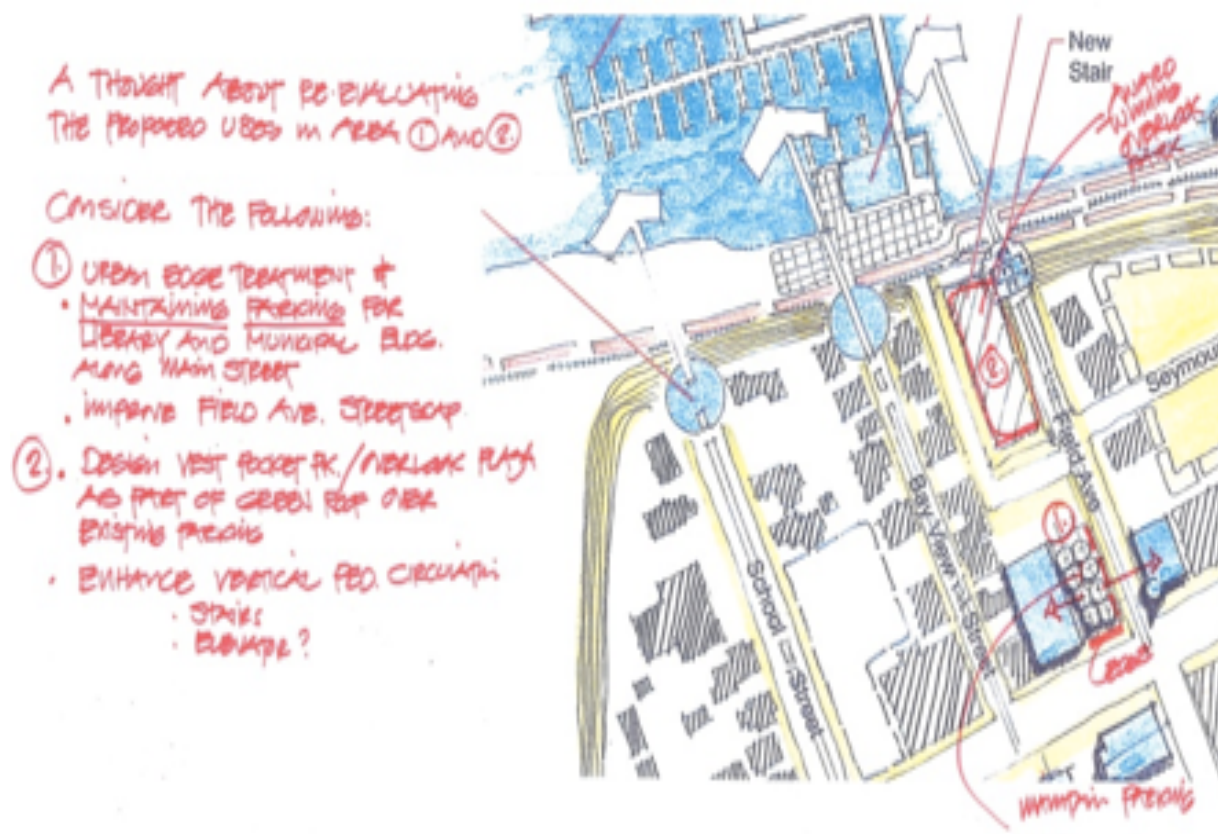 A THOUGHT ABOUT RE-EVALUATING
THE PROPOSED USES IN AREA ① AND ②
CONSIDER THE FOLLOWING:
① URBAN EDGE TREATMENT &
• MAINTAINING PARKING FOR
LIBRARY AND MUNICIPAL BLDG.
ALONG MAIN STREET
• IMPROVE FIELD AVE. STREETSCAP.
② • DESIGN VEST POCKET PK./OVERLOOK PLAZA
AS PART OF GREEN ROOF OVER
EXISTING PARKING
• ENHANCE VERTICAL PED. CIRCULATION
• STAIRS
• ELEVATOR?
New
Stair
AWARD
WINNING
OVERLOOK
PARK
②
Seymour
Field Ave
①
Bay View Street
School Street
EDGE
MAINTAIN PARKING